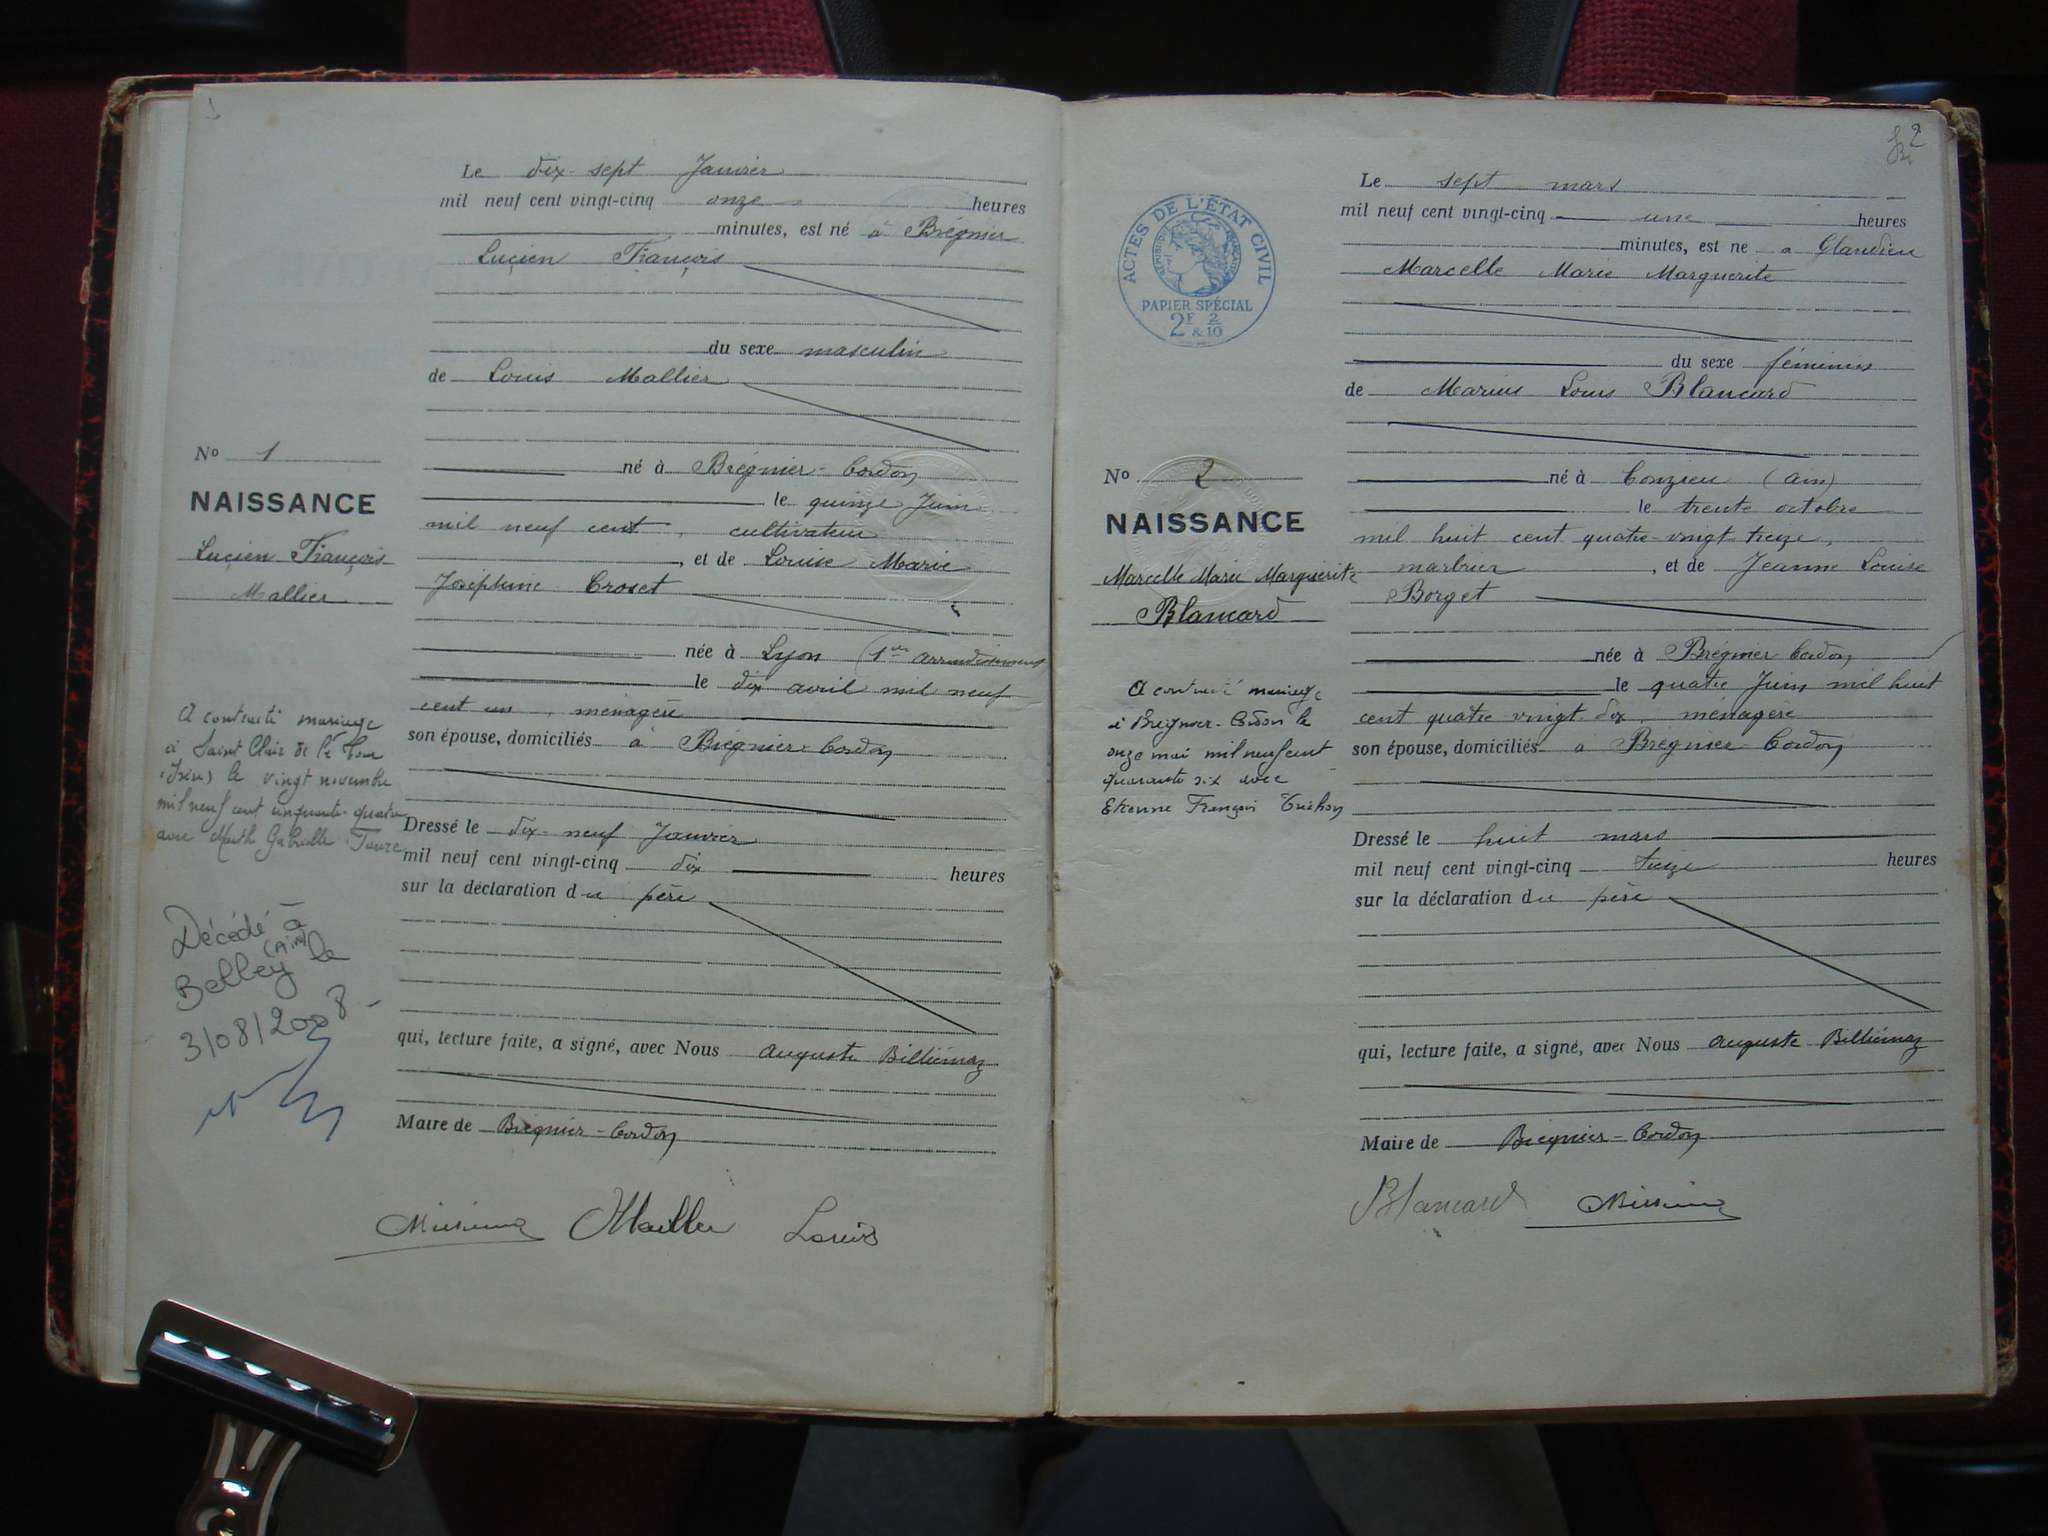 Le dix-sept Janvier
mil neuf cent vingt-cinq onze heures
minutes, est né à Brégnier
Lucien François
du sexe masculin
de Louis Mallier
né à Brégnier-Cordon
le quinze Juin
mil neuf cent, cultivateur
, et de Louise Marie
Joséphine Croset
née à Lyon (1er arrondissement
le dix avril mil neuf
cent un, ménagère
son épouse, domiciliés à Brégnier-Cordon
Dressé le dix-neuf Janvier
mil neuf cent vingt-cinq dix heures
sur la déclaration du père
qui, lecture faite, a signé, avec Nous Auguste Billiémaz
Maire de Brégnier-Cordon
Mallier Louis
No 1
NAISSANCE
Lucien François
Mallier
A contracté mariage
à Saint Clair de la Tour
(Isère) le vingt novembre
mil neuf cent cinquante-quatre
avec Gabrielle
Décédé à
Belley (Ain) le
3/08/2008
2
Le sept mars
mil neuf cent vingt-cinq une heures
minutes, est né a Glandieu
Marcelle Marie Marguerite
du sexe féminin
de Marius Louis Blancard
né à Conzieu (Ain)
le trente octobre
mil huit cent quatre-vingt treize,
marbrier, et de Jeanne Louise
Borget
née à Brégnier-Cordon
le quatre Juin mil huit
cent quatre vingt-dix, ménagère
son épouse, domiciliés à Brégnier-Cordon
Dressé le huit mars
mil neuf cent vingt-cinq heures
sur la déclaration du père
qui, lecture faite, a signé, avec Nous Auguste Billiémaz
Maire de Brégnier-Cordon
Blancard
ACTES DE L'ÉTAT CIVIL
PAPIER SPÉCIAL
2F & 2/10
No 2
NAISSANCE
Marcelle Marie Marguerite
Blancard
A contracté mariage
à Brégnier-Cordon le
onze mai mil neuf cent
quarante six avec
Etienne François